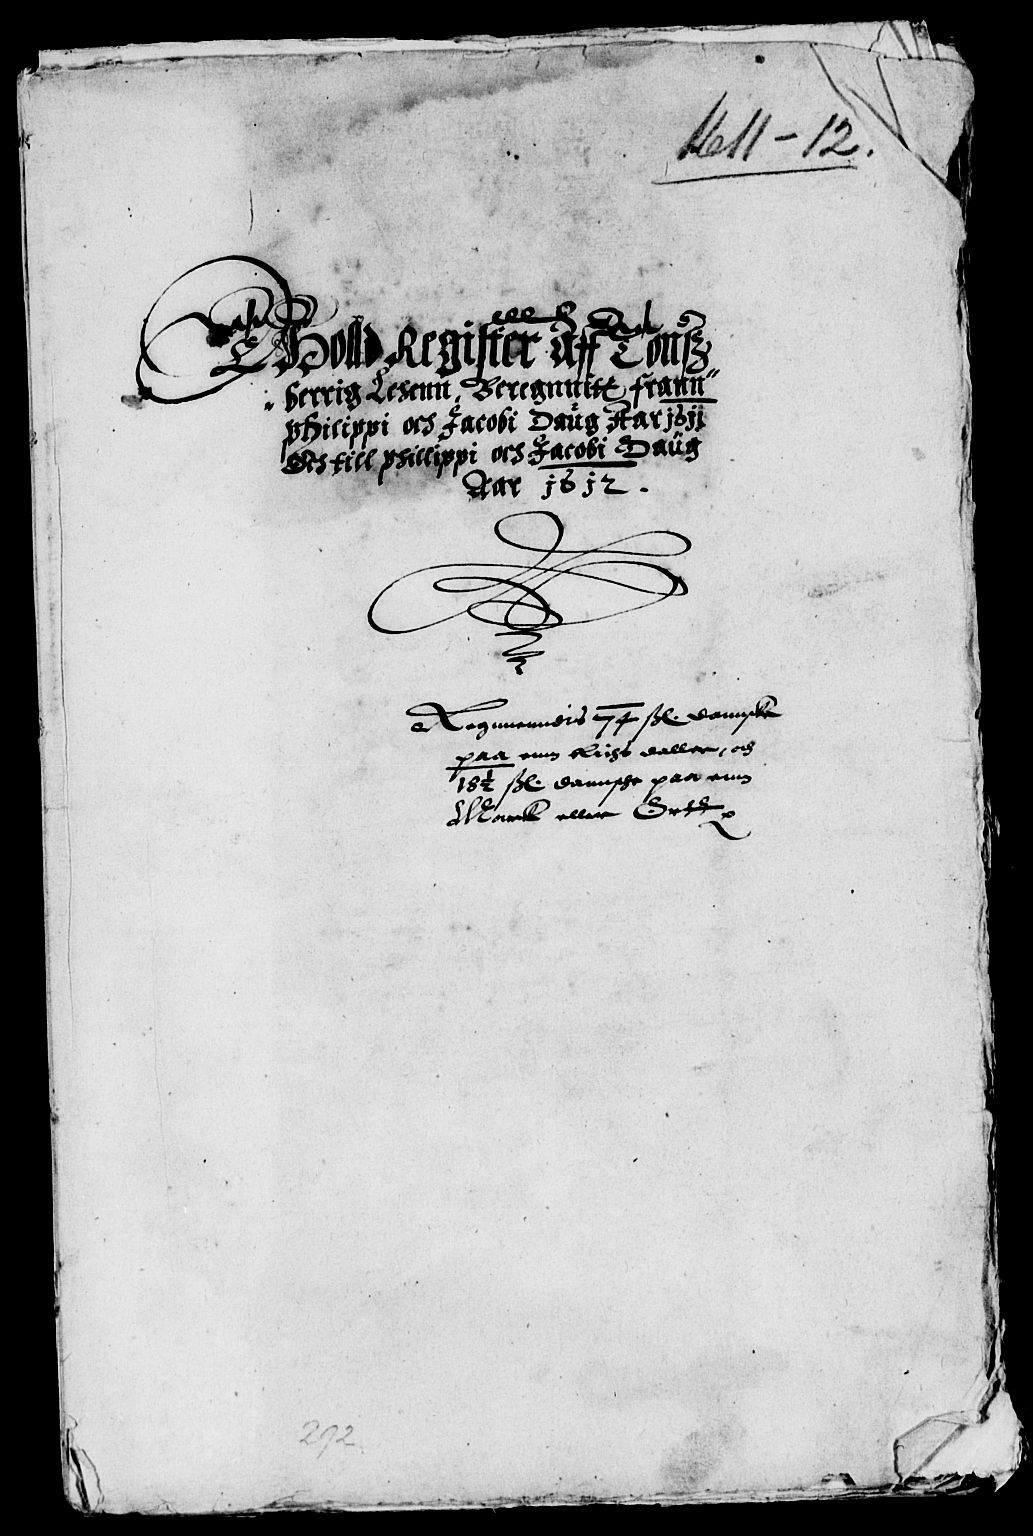 1611-12.
Tholld Register Aff Tonß
berrig Lehenn, Beregnnitt frann
philippi och Jacobi Daug Aar 1611
Och till phillippi och Jacobi Daug
Aar 1612.
Regnnendis 74 ßl. dannske
paa enn Rigs daller, och
18½ ßl. dannshe paa enn
Marck eller Ortt
292